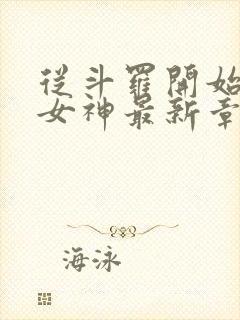 從斗羅開始
女神最新章
海泳